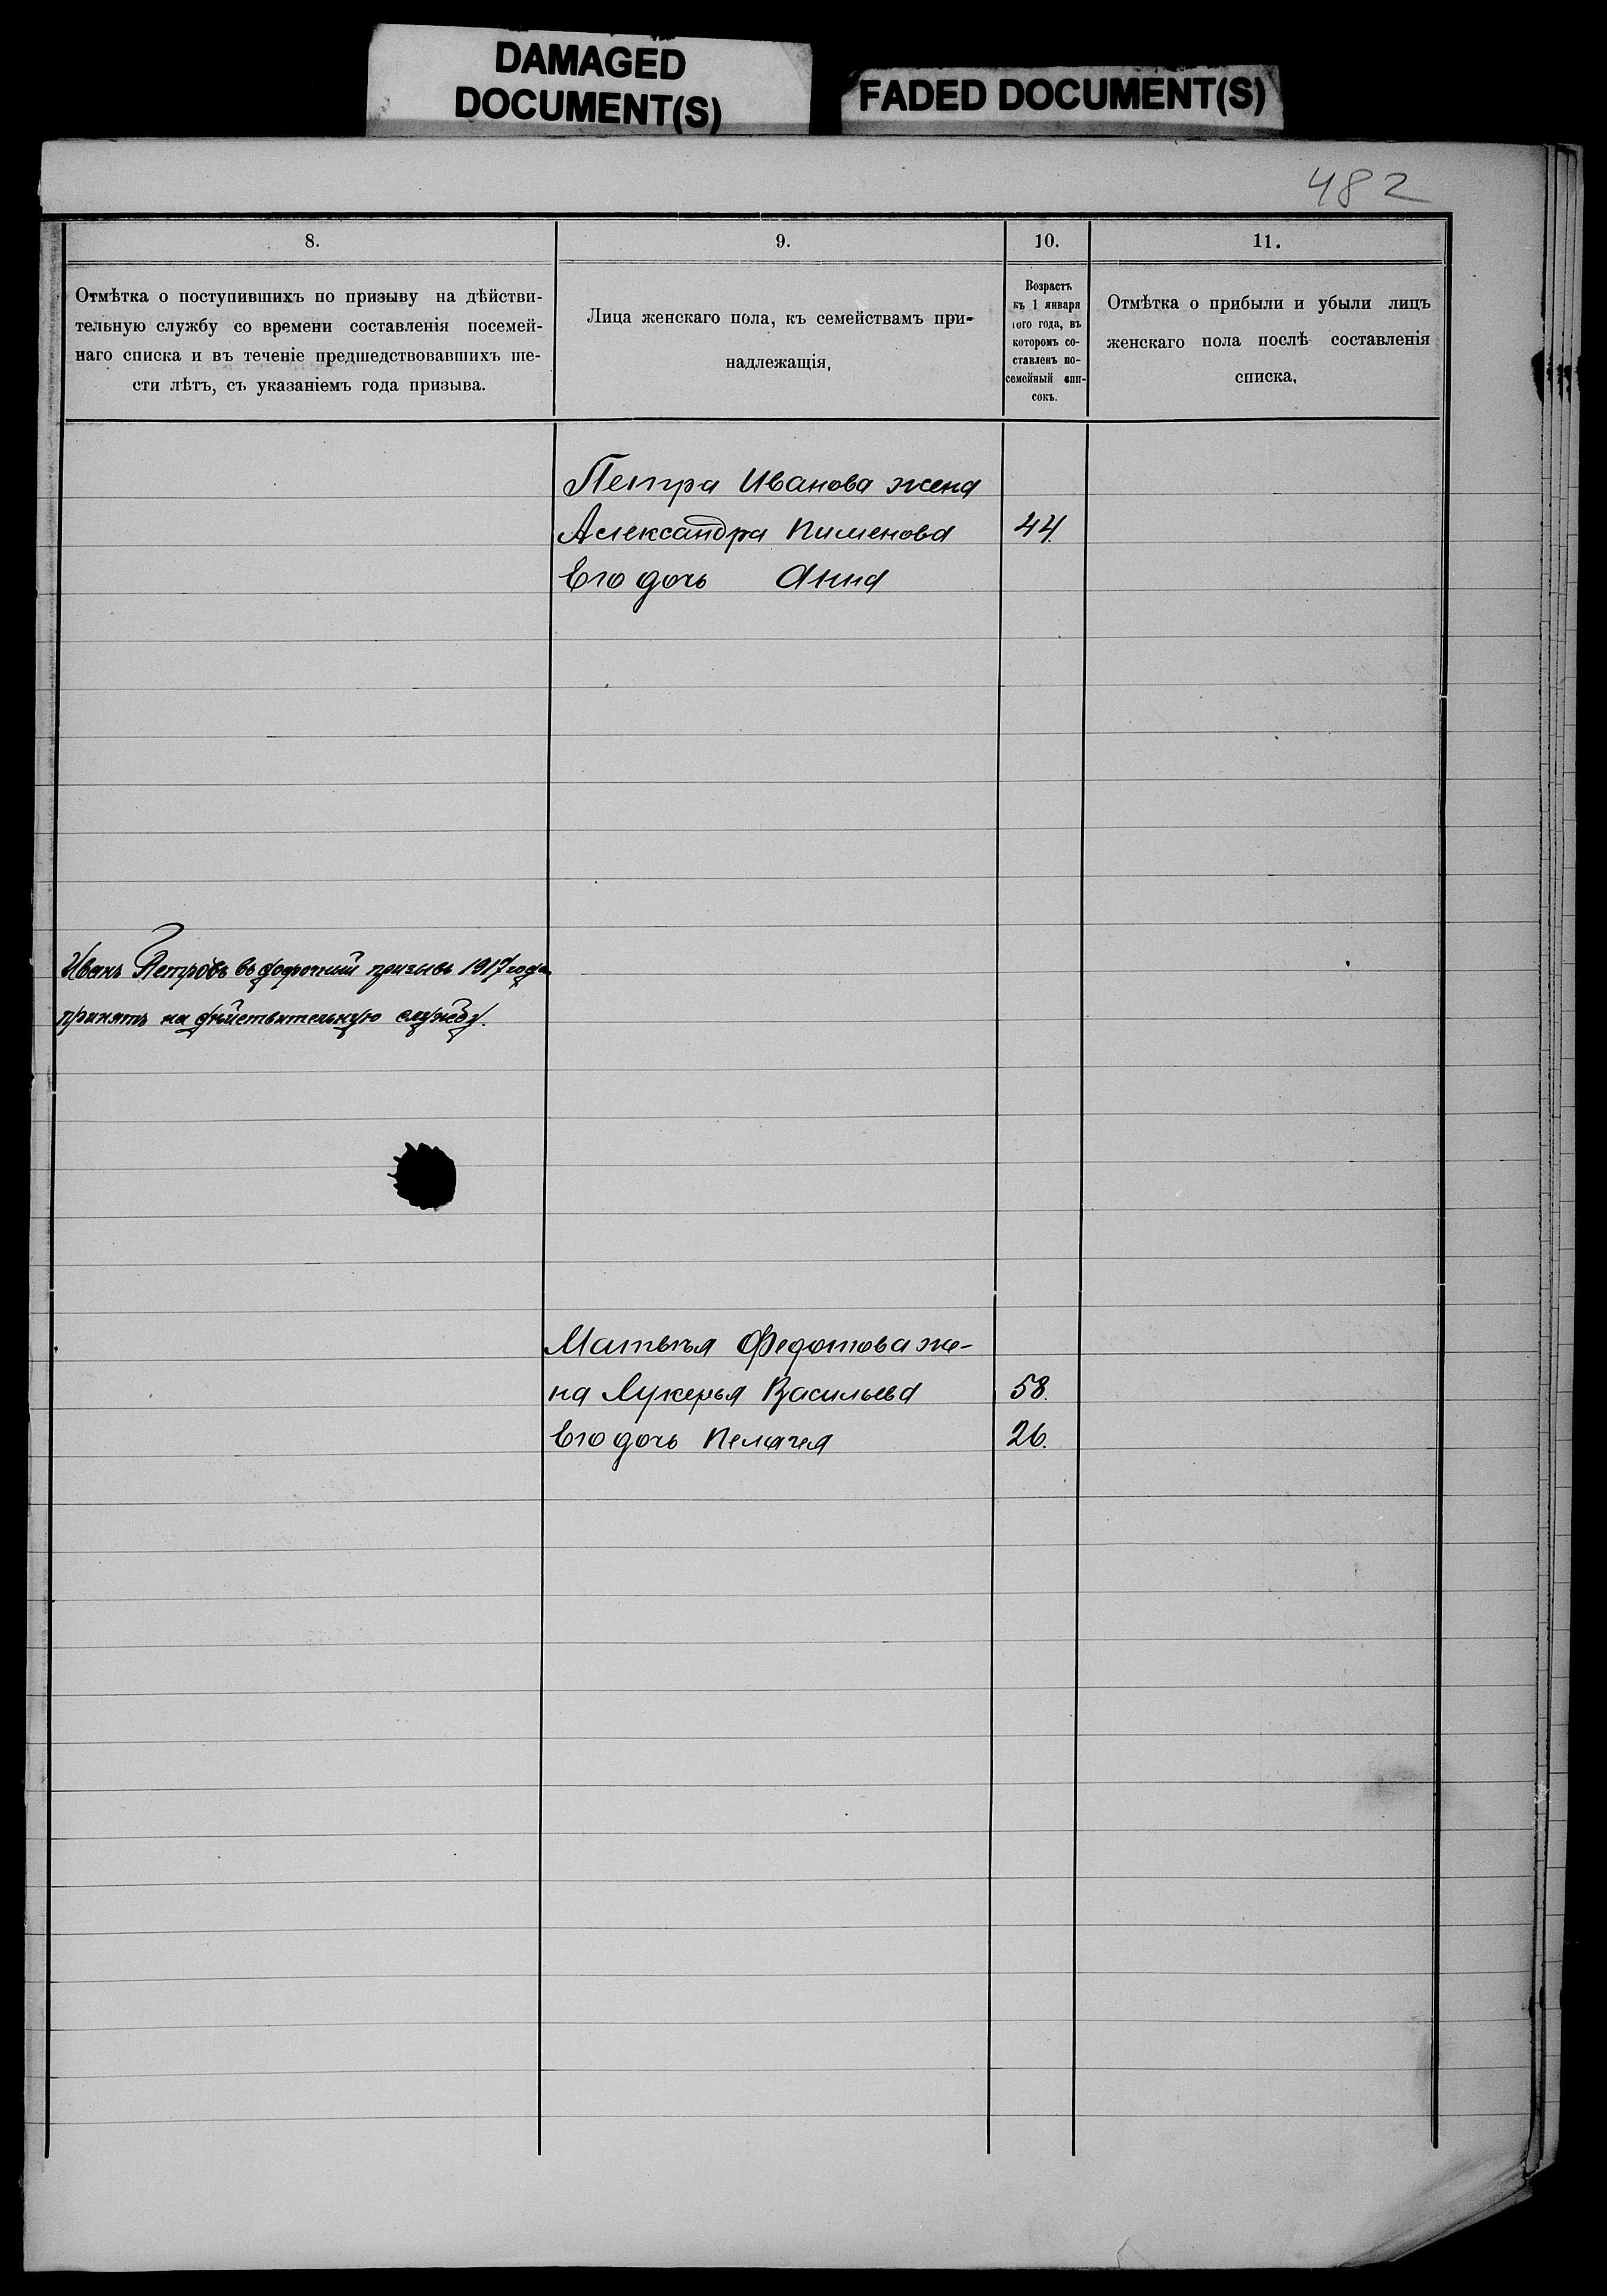 DAMAGED
DOCUMENT(S)
FADED DOCUMENT(S)
482
8.
9.
10.
11.
Отмѣтка о поступившихъ по призыву на дѣйстви-
тельную службу со времени составленія посемей-
наго списка и въ теченіе предшедствовавшихъ ше-
сти лѣтъ, съ указаніемъ года призыва.
Лица женскаго пола, къ семействамъ при-
надлежащія,
Возрастъ
къ 1 января
того года, въ
которомъ со-
ставленъ по-
семейный спи-
сокъ.
Отмѣтка о прибыли и убыли лицъ
женскаго пола послѣ составленія
списка,
Петра Иванова жена
Александра Пименова 44.
Его дочь Анна
Иванъ Петровъ въ досрочный призывъ 1917 года
принятъ на дѣйствительную службу.
Матвѣя Федотова же-
на Лукерья Васильева 58.
Его дочь Пелагея 26.